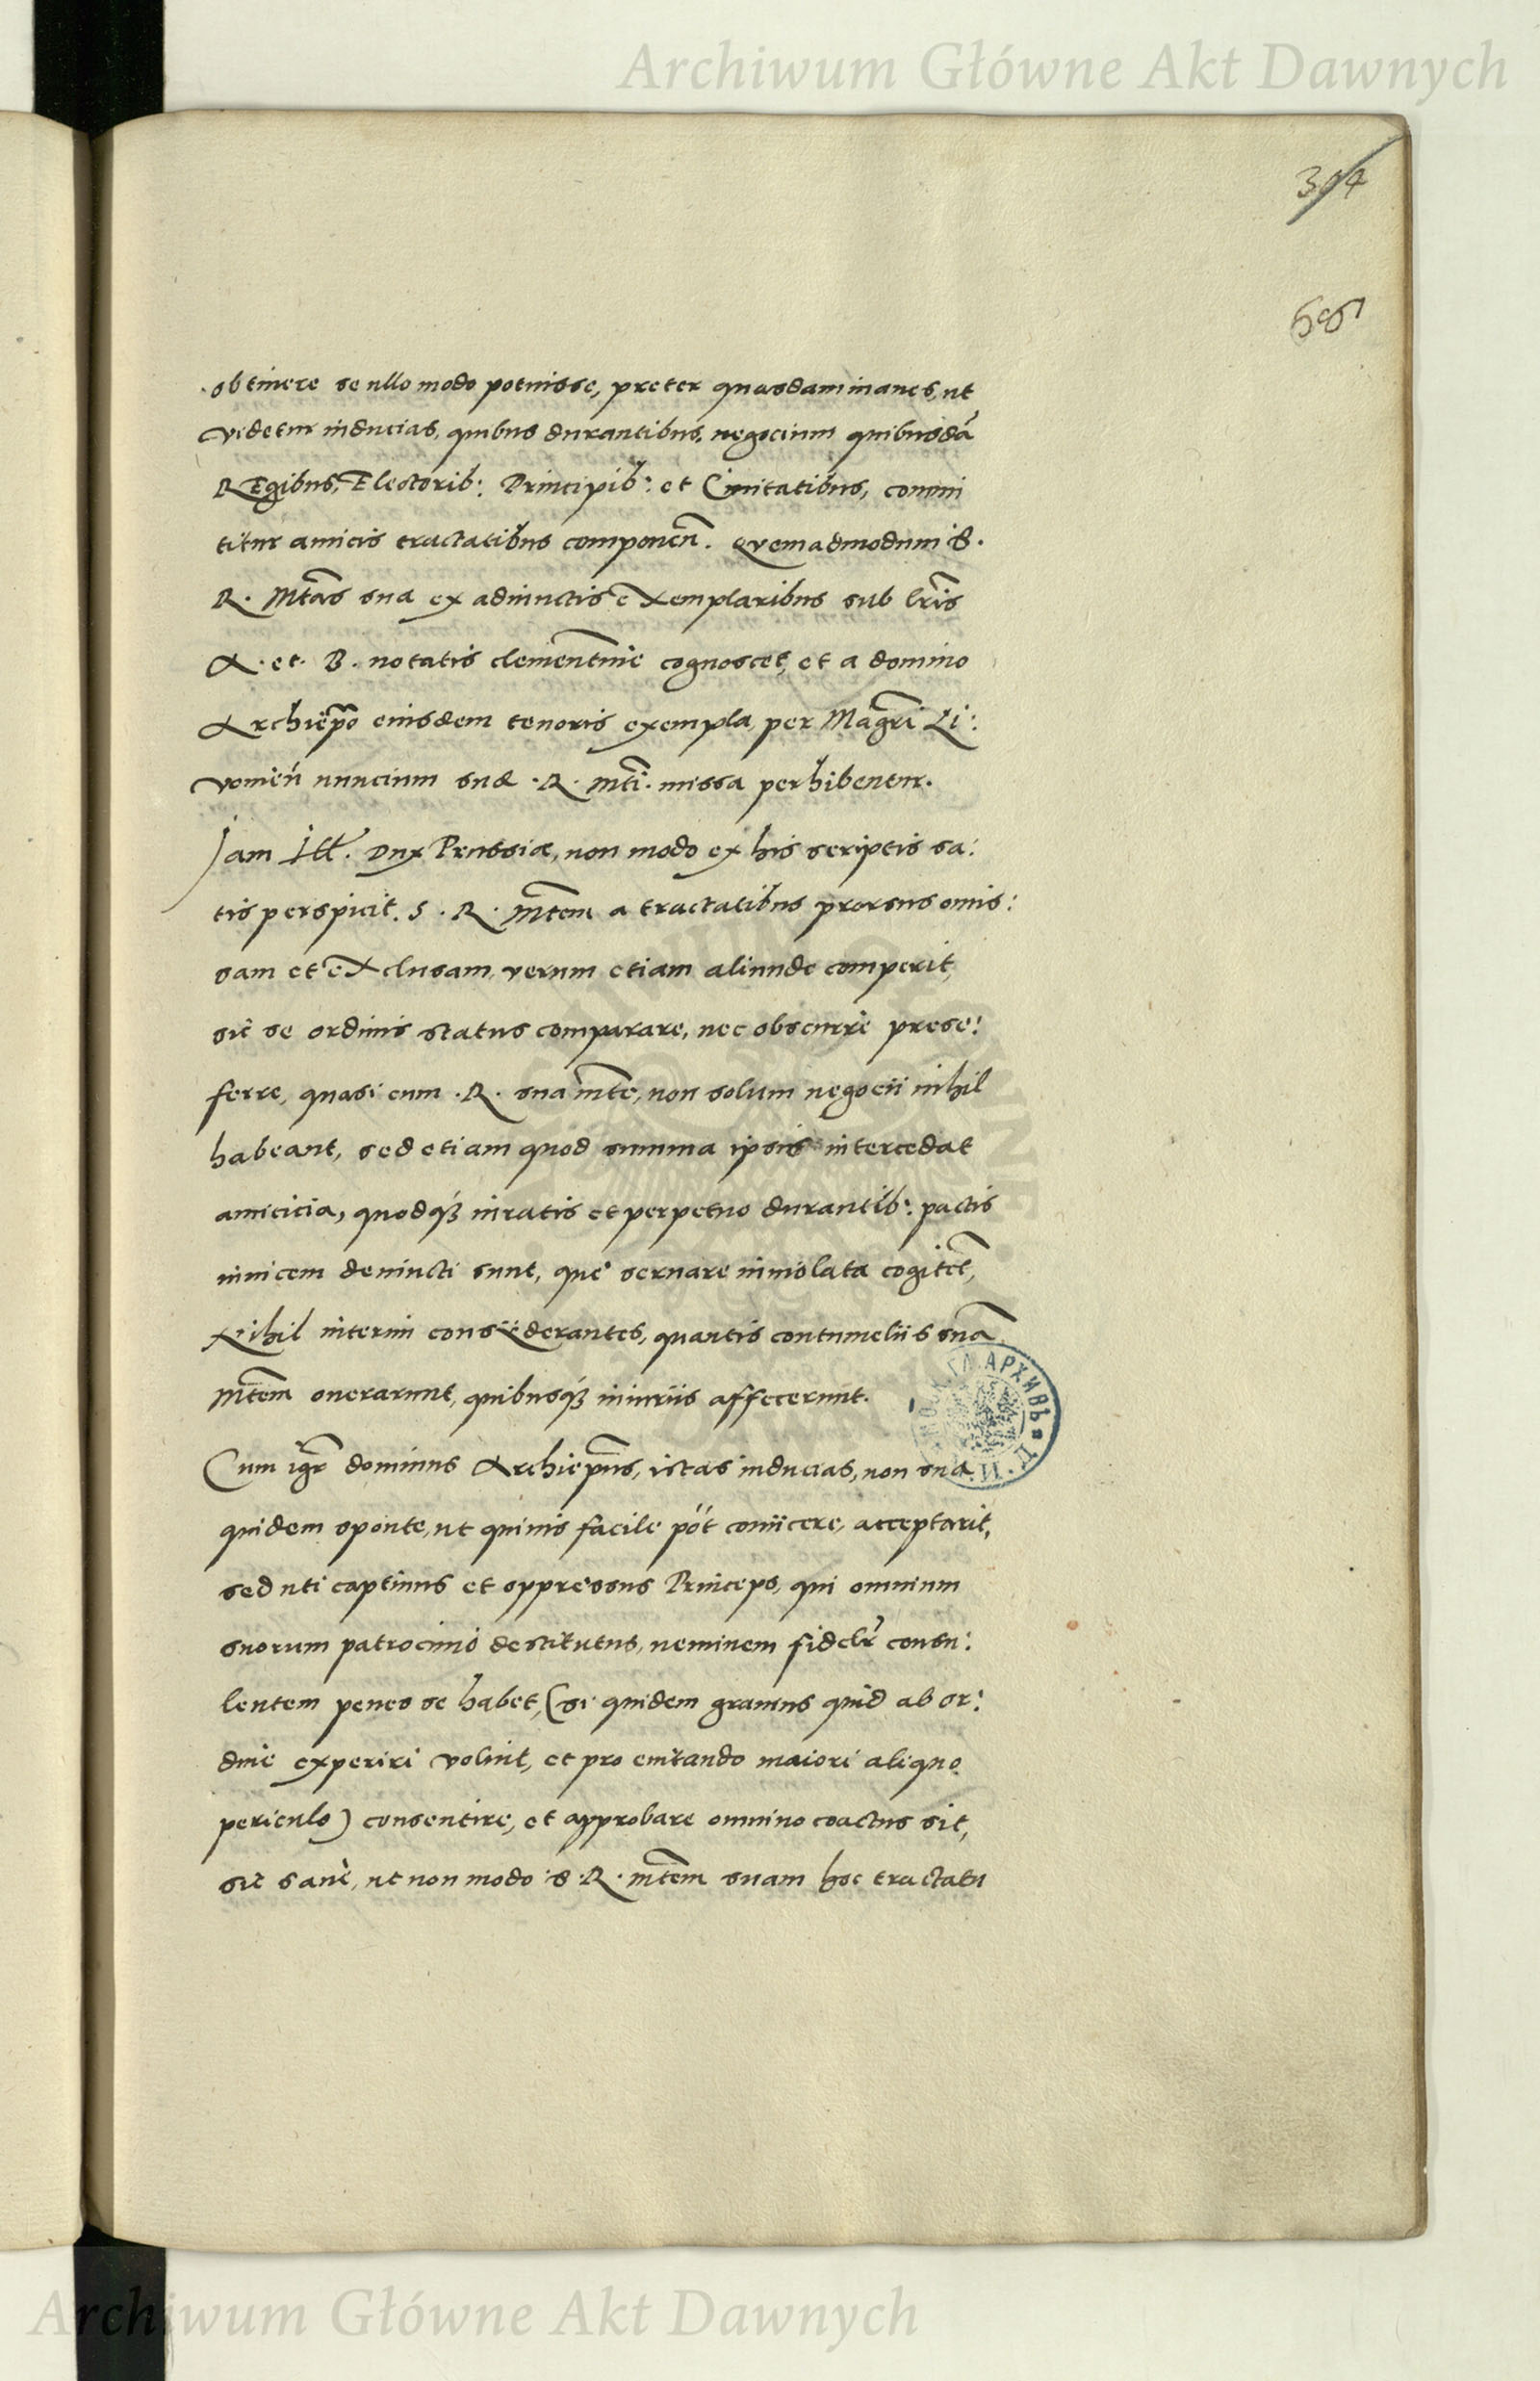 Archiwum Główne Akt Dawnych
304
obtinere se ullo modo potuisse, preter quasdam inanes, ut
videtur inducias, quibus durantibus, negocium quibusdā
REgibus, Electorib: Principib: et Ciuitatibus, commi
titur amicis tractatibus componēn. Quemadmodum S.
R. Mtas sua ex adiunctis eXemplaribus sub lris
A. et. B. notatis clementme cognoscet, et a domino
Archiepo eiusdem tenoris exempla, per Magri Li:
vonien nuncium suæ .R. Mti. missa perhibentur.
Jam Ill. Dux Prussiæ, non modo ex his scriptis sa:
tis perspicit. S. R. Mtem a tractatibus prorsus omis:
sam et eXclusam, verum etiam aliunde comperit,
sic se ordinis status comparare, nec obscurè prese:
ferre, quasi cum .R. sua mte, non solum negocii nihil
habeant, sed etiam quod summa ipsis intercedat
amicicia, quodq; iuratis et perpetuo durantib: pactis
inuicem deuincti sunt, que seruare inuiolata cogitet,
Nihil interim considerantes, quantis contumeliis suā
Mtem onerarunt, quibusq; iniuriis affecerunt.
Cum igr dominus Archiepus, istas inducias, non sua
quidem sponte, ut quiuis facile pot coniicere, acceptarit,
sed uti captiuus et oppressus Princeps, qui omnium
suorum patrocinio destitutus, neminem fidelr consu:
lentem penes se habet, (si quidem grauius quid ab or:
dine experiri voluit, et pro euitando maiori aliquo
periculo) consentire, et approbare omnino coactus sit,
sic sanè, ut non modo S. R. Mtem suam hoc tractatu
Archiwum Główne Akt Dawnych